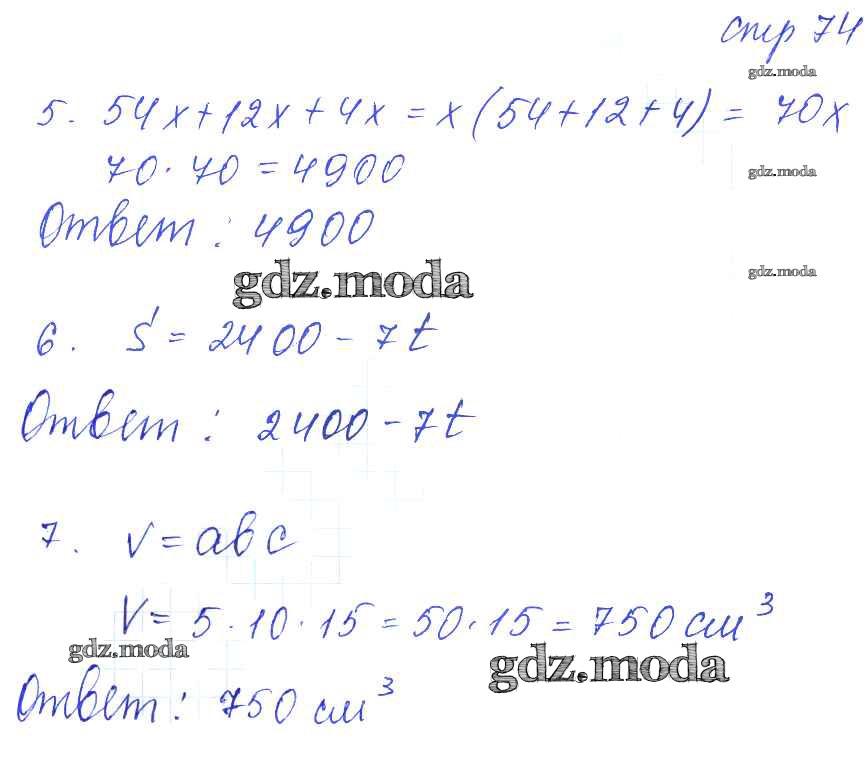 стр 74
gdz.moda
5. 54x+12x+4x = x(54+12+4) = 70x
70·70 = 4900
gdz.moda
Ответ: 4900
gdz.moda
gdz.moda
6. S = 2400 - 7t
Ответ: 2400 - 7t
7. V = abc
V = 5·10·15 = 50·15 = 750 см³
gdz.moda
gdz.moda
Ответ: 750 см³